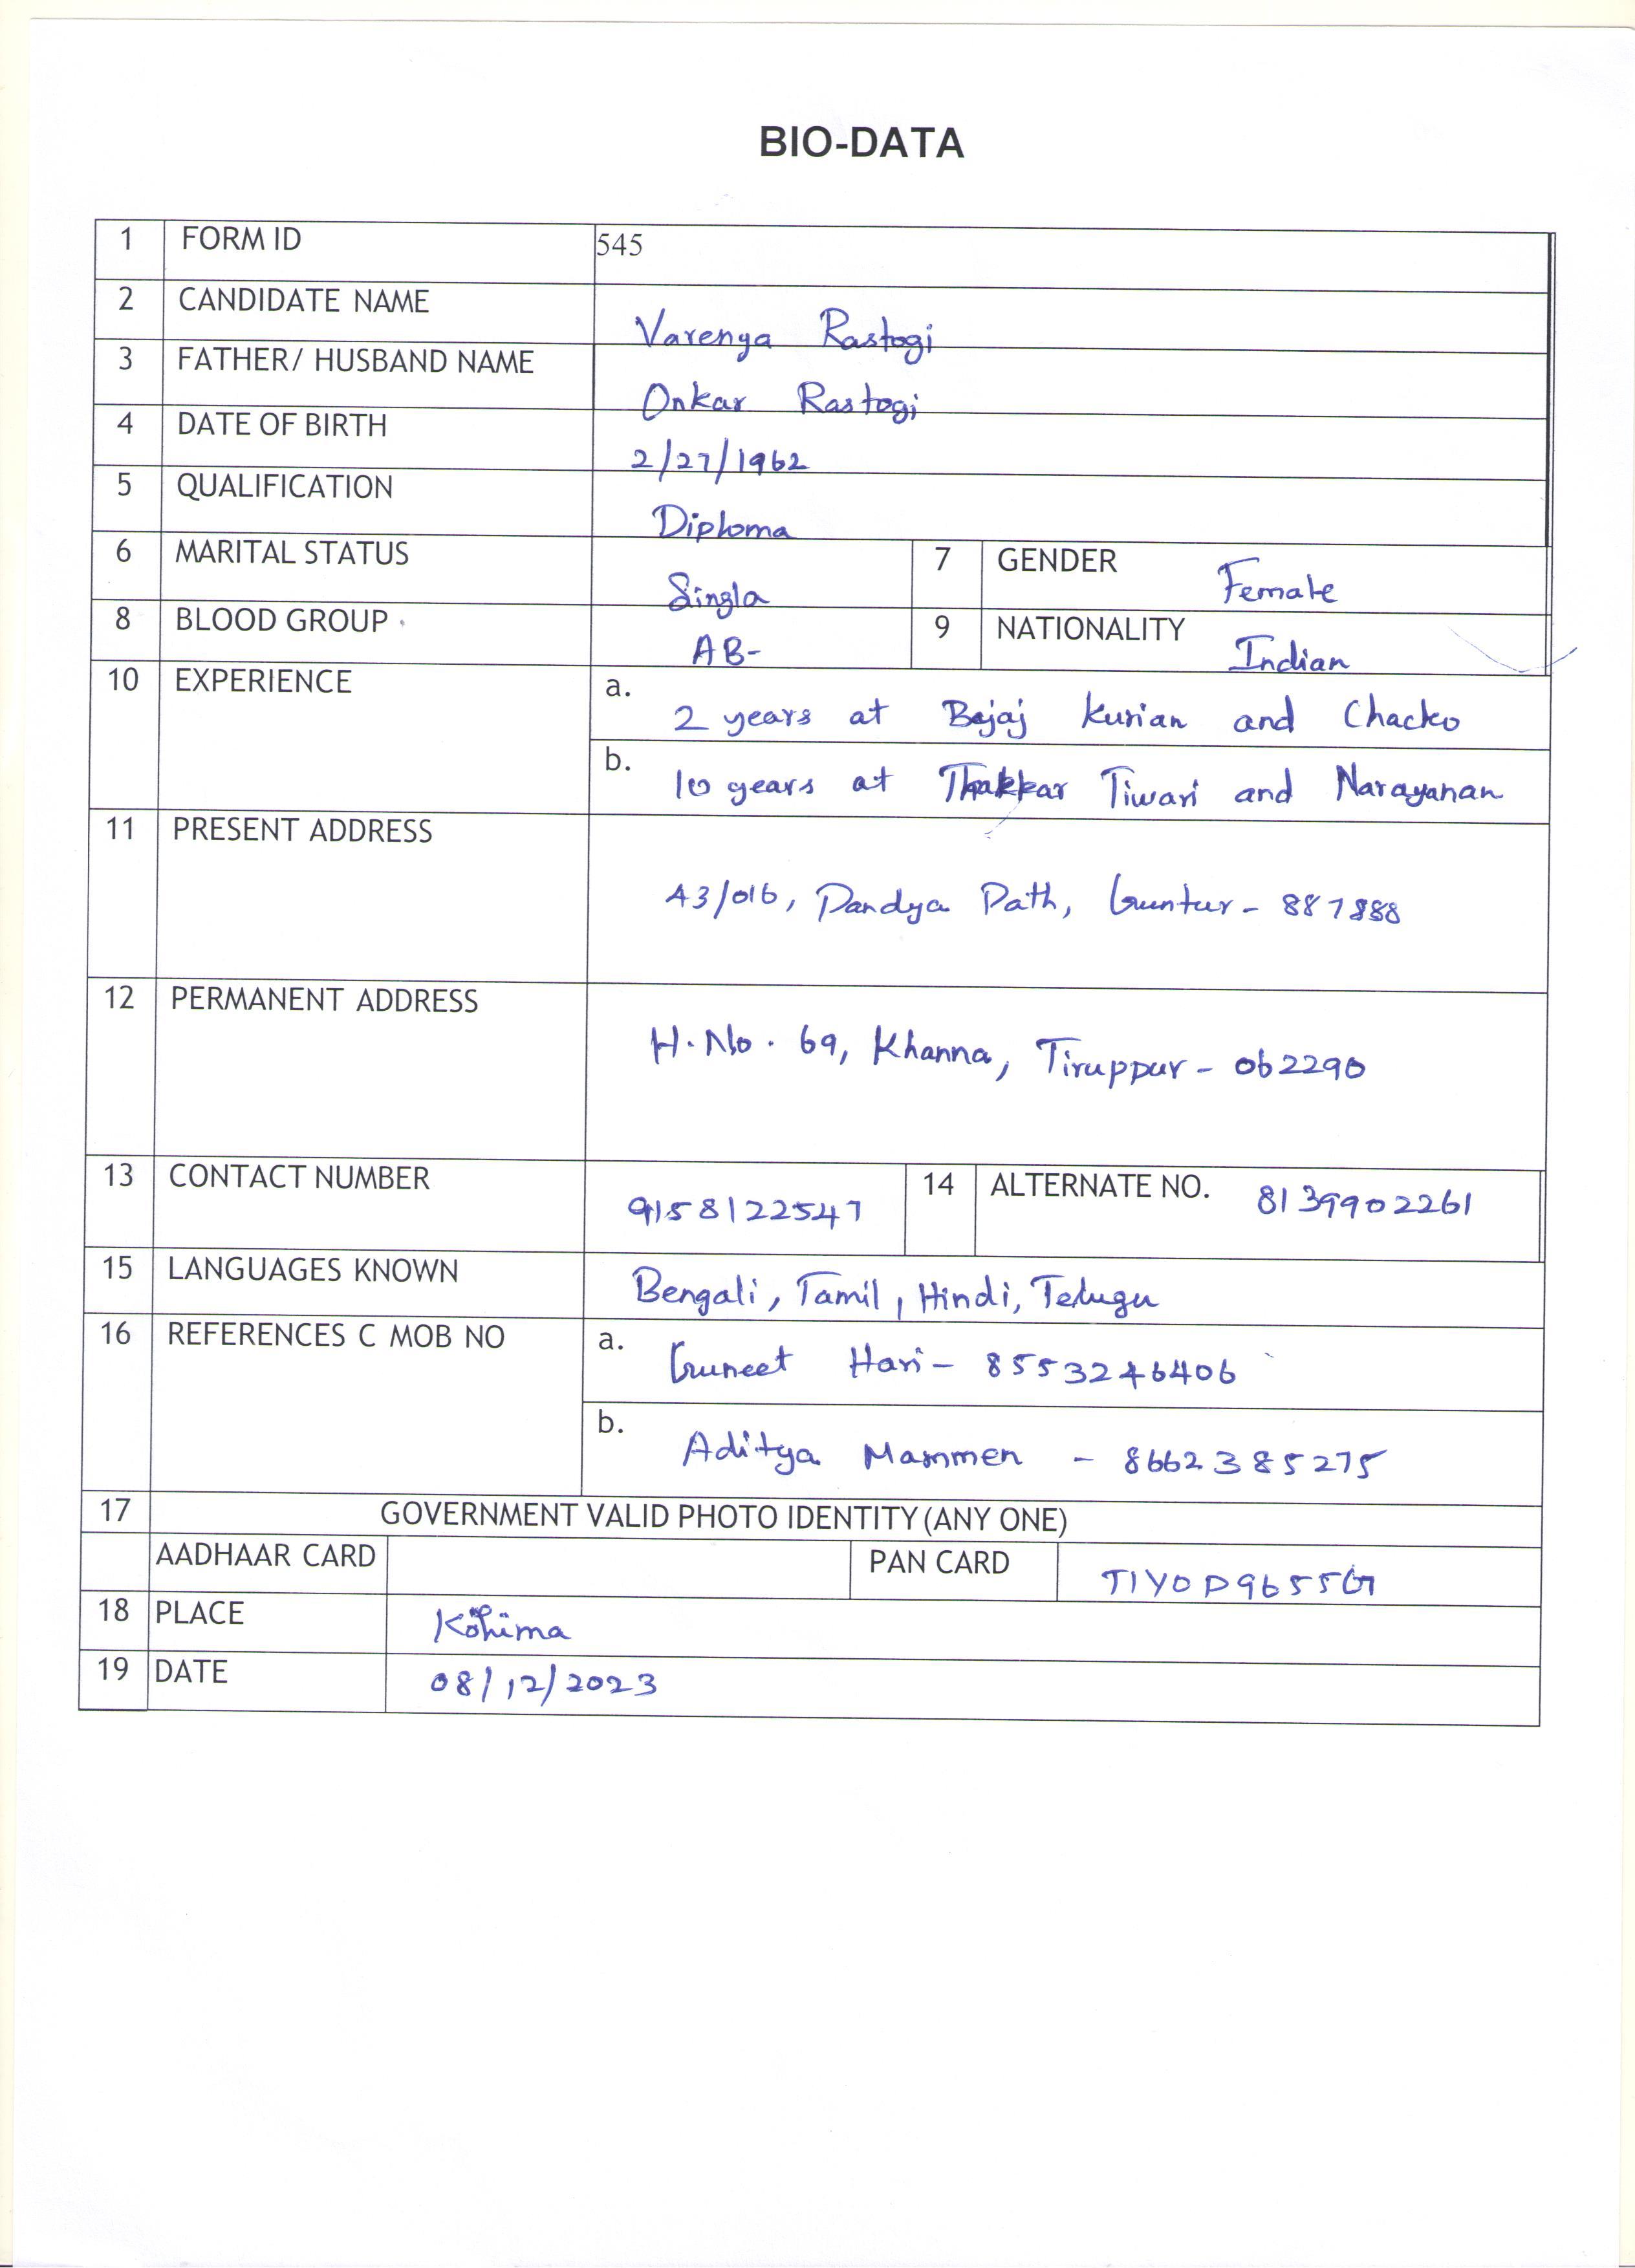 BIO-DATA
1 FORM ID 545
2 CANDIDATE NAME Varenya Rastogi
3 FATHER/ HUSBAND NAME Onkar Rastogi
4 DATE OF BIRTH 2/27/1962
5 QUALIFICATION Diploma
6 MARITAL STATUS Singla 7 GENDER Female
8 BLOOD GROUP AB- 9 NATIONALITY Indian
10 EXPERIENCE a. 2 years at Bajaj Kurian and Chacko
b. 10 years at Thakkar Tiwari and Narayanan
11 PRESENT ADDRESS 43/016, Pandya Path, Guntur - 887888
12 PERMANENT ADDRESS H.No. 69, Khanna, Tiruppur - 062290
13 CONTACT NUMBER 9158122547 14 ALTERNATE NO. 8139902261
15 LANGUAGES KNOWN Bengali, Tamil, Hindi, Telugu
16 REFERENCES C MOB NO a. Guneet Hari - 8553246406
b. Aditya Mammen - 8662385275
17 GOVERNMENT VALID PHOTO IDENTITY (ANY ONE)
AADHAAR CARD PAN CARD TIYOD9655G
18 PLACE Kohima
19 DATE 08/12/2023